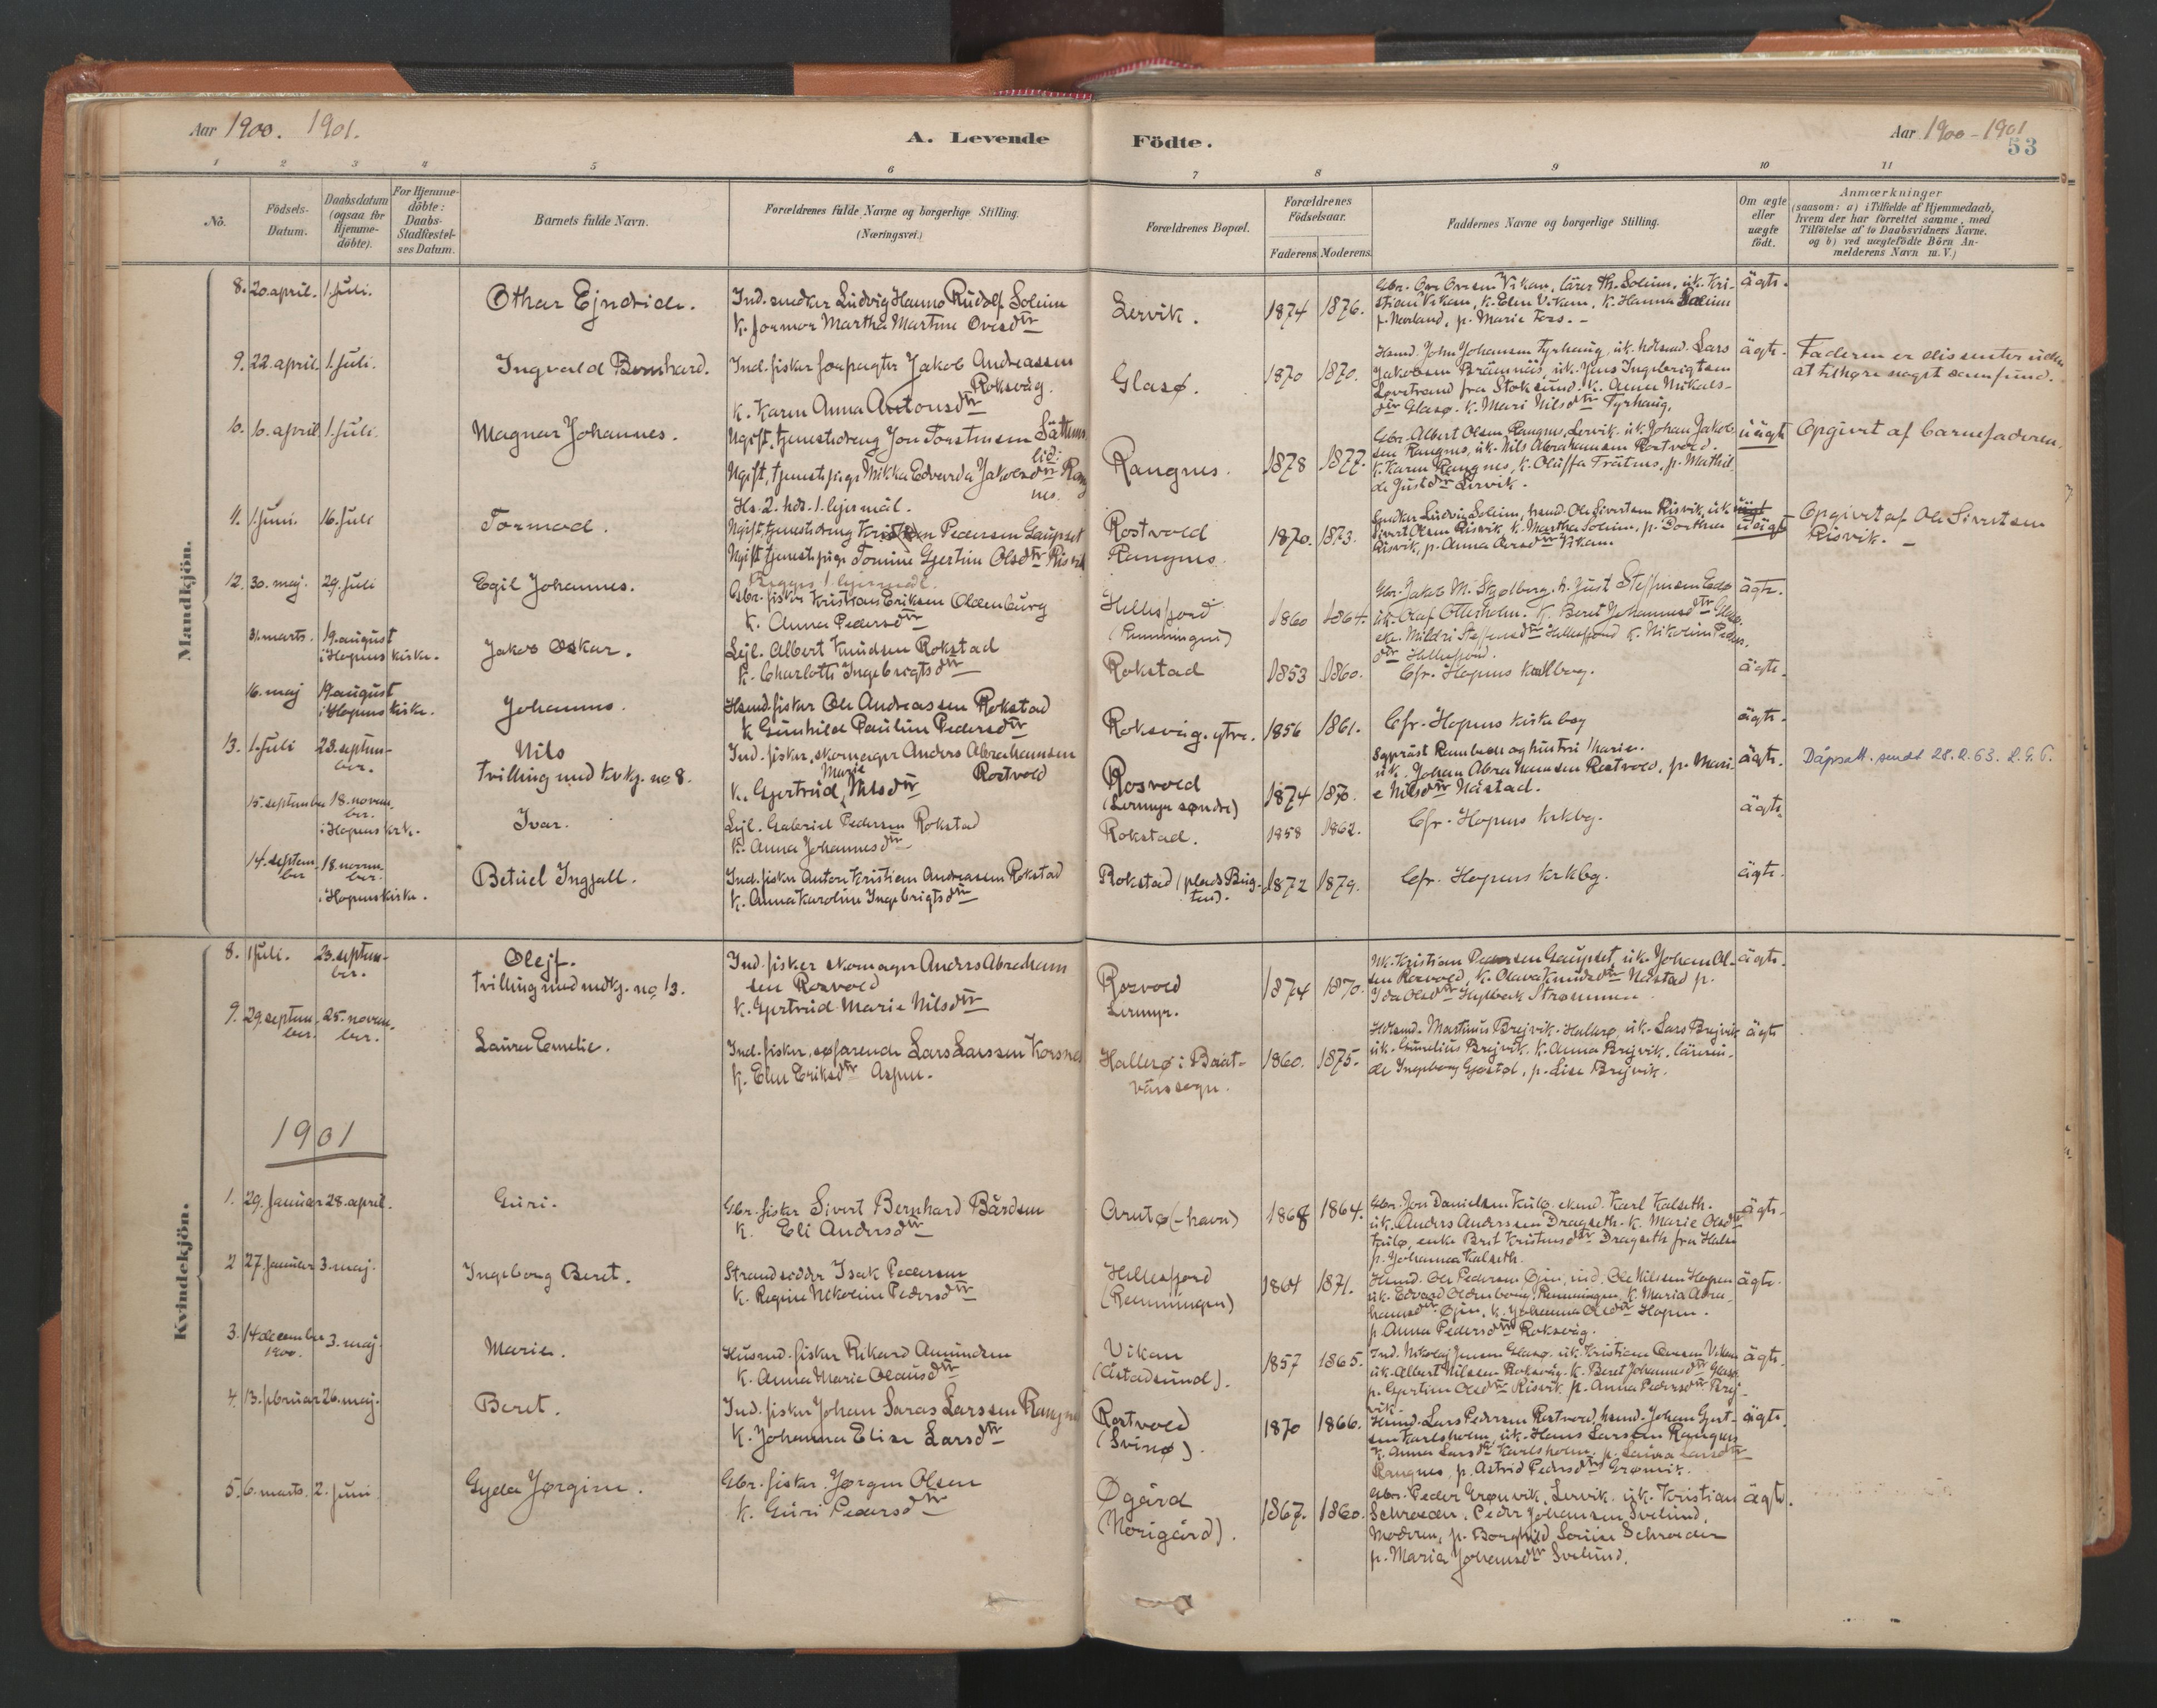 Aar 1900. 1901.
A. Levende
Födte.
Aar 1900-1901
53
1 2 3 4 5 6 7 8 9 10 11
No.
Födsels-
Datum.
Daabsdatum
(ogsaa for
Hjemme-
döbte).
For Hjemme-
döbte:
Daabs-
Stadfæstel-
ses Datum.
Barnets fulde Navn.
Forældrenes fulde Navne og borgerlige Stilling.
(Næringsvei.)
Forældrenes Bopæl.
Forældrenes
Födselsaar.
Faderens. Moderens.
Faddernes Navne og borgerlige Stilling.
Om ægte
eller
uægte
födt.
Anmærkninger
(saasom: a) i Tilfælde af Hjemmedaab,
hvem der har forrettet samme, med
Tilföielse af to Daabsvidners Navne.
og b) ved uægtefödte Börn An-
melderens Navn m. V.)
Mandkjön.
8. 20. april. 1. juli.
Othar Ejndride.
Ind. snedker Ludvig Hanno Rudolf Soleim
K. jormor Martha Martine Ovesdtr
Lervik.
1874 1876.
Gbr. Ove Ovesen Vikan, lärer Th. Soleim, uk. Kri-
stian Vikan, k. Elen Vikan, k. Hanna Soleim
p. Marie Foss. -
ägte.
9. 22. april. 1. juli.
Ingvald Bernhard.
Ind. fisker Jakob Andreassen
Roksvåg.
K. Karen Anna Antonsdtr
Glasø.
1870 1870.
Hsmd. John Johansen Tyrhaug, uk. Lars
Jakobsen Brämnäs, uk. Jens Ingebrigtsen
Løvstrand fra Stoksund. K. Anne Mikals-
dtr Glasø. K. Mari Nilsdtr Tyrhaug.
ägte.
Faderen er dissenter uden
at tilhøre noget samfund.
10. 10. april 1. juli.
Magnar Johannes.
Ugift, tjenestedreng Jon Torstensen Sättems-
lid:
Ugift, tjenestepige Mikka Edvarda Jakobsdtr Rang
nes.
Hs. 2. hds. 1. lejermål.
Rangnes.
1878 1877.
Gbr. Albert Olsen Rangnes, Lervik. uk. Johan Jakob
sen Rangnes, uk. Nils Abrahamsen Rostvold.
K. Karen Rangnes, k. Oluffa Trätnes, p. Mathil-
de Justdtr Lervik.
uägte
Opgivet af barnefaderen.
11. 1. juni. 16. juli
Tormod.
Ugift, tjenestedreng Kristen Pedersen Gaupset
Ugift tjenestepige Tomine Gjertine Olsdtr Risvik
Begges 1. lejermål.
Rostvold
Rangnes.
1870. 1873.
Snedker Ludvig Soleim, hsmd. Ole Sivertsen Risvik, uk.
Sivert Olsen Risvik, k. Martha Soleim, p. Dorthea
Risvik, p. Anna Ovesdtr Vikan.
uägte
Opgivet af Ole Sivertsen
Risvik. -
12. 30. maj. 29. juli
Egil Johannes.
Gbr. fisker Kristian Eriksen Oldenburg
K. Anna Pedersdtr
Hellesfjord
(Renningen)
1860 1864.
Gbr. Jakob M. Skjølberg. h. Just Steffensen Edø
uk. Olaf Otterholm. K. Beret Johannesdtr Glasø.
eke. Mildri Steffensdtr Hellesfjord K. Nikoline Peders-
dtr Hellesfjord.
ägte.
31. marts. 19. august
i Hopens kirke.
Jakob Oskar.
Lejl. Albert Knudsen Rokstad
K. Charlotte Ingebrigtsdtr
Rokstad
1853 1860.
Cfr. Hopens krkbog.
ägte.
16. maj 19. august
i Hopens kirke.
Johannes.
Hsmd. fisker Ole Andreassen Rokstad
K Gunhild Pauline Pedersdtr
Roksvåg. ytre.
1856 1861.
Cfr. Hopens kirkebog
ägte.
13. 1. juli 23. septem-
ber.
Nils
Tvilling med kvkj. no 8.
Ind. fisker, skomager Anders Abrahamsen
Rostvold
K. Gjertrud Marie Nilsdtr
Rosvold
(Lermyr søndre)
1874 1870.
Sogpräst Rambech og hustru Marie.
uk. Johan Abrahamsen Rostvold, p. Mari-
e Nilsdtr Nästad.
ägte.
Dåpsatt. sendt 28.2.63. L.G.P.
15. september 18. novem-
ber.
i Hopens krk.
Ivar.
Lejl. Gabriel Pedersen Rokstad
K. Anna Johannesdtr
Rokstad.
1858 1862.
Cfr. Hopens krkbg.
ägte.
14. septem-
ber 18. novem-
ber.
i Hopens kirke.
Betuel Ingjall.
Ind. fisker Anton Kristian Andreasen Rokstad
K. Anna Karoline Ingebrigtsdtr
Rokstad (plads Bug-
ten).
1872 1879.
Cfr. Hopens krkbg.
ägte.
Kvindekjön.
8. 1 juli. 23. septem-
ber.
Olejf.
Tvilling med mdkj. no 13.
Ind. fisker skomager Anders Abraham
sen Rosvold
K. Gjertrud Marie Nilsdtr
Rosvold
Lermyr.
1874 1870.
Uk. Kristian Pedersen Gaupset, uk. Johan Ol-
sen Rosvold, K. Olava Knudsdtr Nästad p.
Ida Olsdtr Hylbak Strømmen.
ägte.
9. 29. septem-
ber. 25. novem-
ber.
Laura Emelie.
Ind. fisker, søfarende Lars Larssen Korsnes
K. Elen Eriksdtr Aspen.
Hallerø i Baat-
värssogn.
1860. 1875.
Hsmd. Martinus Brejvik. Hallerø, uk. Lars Brejvik
uk. Cornelius Brejvik. K. Anna Brejvik. lärerin-
de Ingeborg Gjøstøl, p. Lise Brejvik.
ägte
1901
1. 29. januar 28. april.
Guri.
Gbr. fisker Sivert Bernhard Bårdsen
K. Eli Andersdtr
Arntø (-havn)
1868 1864.
Gbr. Jon Danielsen Kulø. ekmd. Karl Kalseth.
uk. Anders Anderssen Dragseth. K. Marie Olsdtr
Kulø, enke Brit Kristensdtr Dragseth fra Halse
p. Johanna Kalseth.
ägte.
2 27. januar 3. maj.
Ingeborg Beret.
Strandsidder Isak Pedersen
K. Regine Nikoline Pedersdtr
Hellesfjord
(Renningen)
1864 1871.
Hsmd. Ole Pedersen Øjen, ind. Ole Nilssen Hopen
uk. Edvard Oldenborg, Renningen. K. Maria Abra-
hamsdtr Øjen, k. Johanna Olsdtr Hopen.
p Anna Pedersdtr Roksvåg.
ägte.
3. 14 december
1900. 3. maj.
Marie.
Husmd. fisker Rikard Amundsen
K. Anna Marie Olausdtr
Vikan
(Ästadsund).
1857 1865.
Ind. Nikolaj Jensen Glasø. uk. Kristian Ovesen Vikan
uk. Albert Nilssen Roksvåg. K. Beret Johannesdtr Glasø
p. Gjertine Olsdtr Risvik. p. Anna Pedersdtr Brej-
vik.
ägte.
4. 13. februar 26. maj.
Beret.
Ind. fisker Johan Saras Larssen Rangnes
K. Johanna Elise Larsdtr
Rostvold
(Svinø).
1870 1866.
Hsmd. Lars Pedersen Rostvold, hsmd. Johan Gjert-
sen Karlsholm, uk. Hans Larssen Rangnes
K. Anna Larsdtr Karlsholm, p. Laura Larsdtr
Rangnes, p. Astrid Pedersdtr Grønvik.
ägte.
5. 6. marts. 2. juni.
Gyda Jørgine.
Gbr. fisker. Jørgen Olsen
K. Guri Pedersdtr
Øgård
(Norigård).
1867. 1860.
Gbr. Peder Grønvik, Lervik. uk. Kristian
Schrøder. Peder Johansen Svelund,
Moderen, p. Borghild Louise Schrøder
p. Maria Johansdtr Svelund.
ägte.